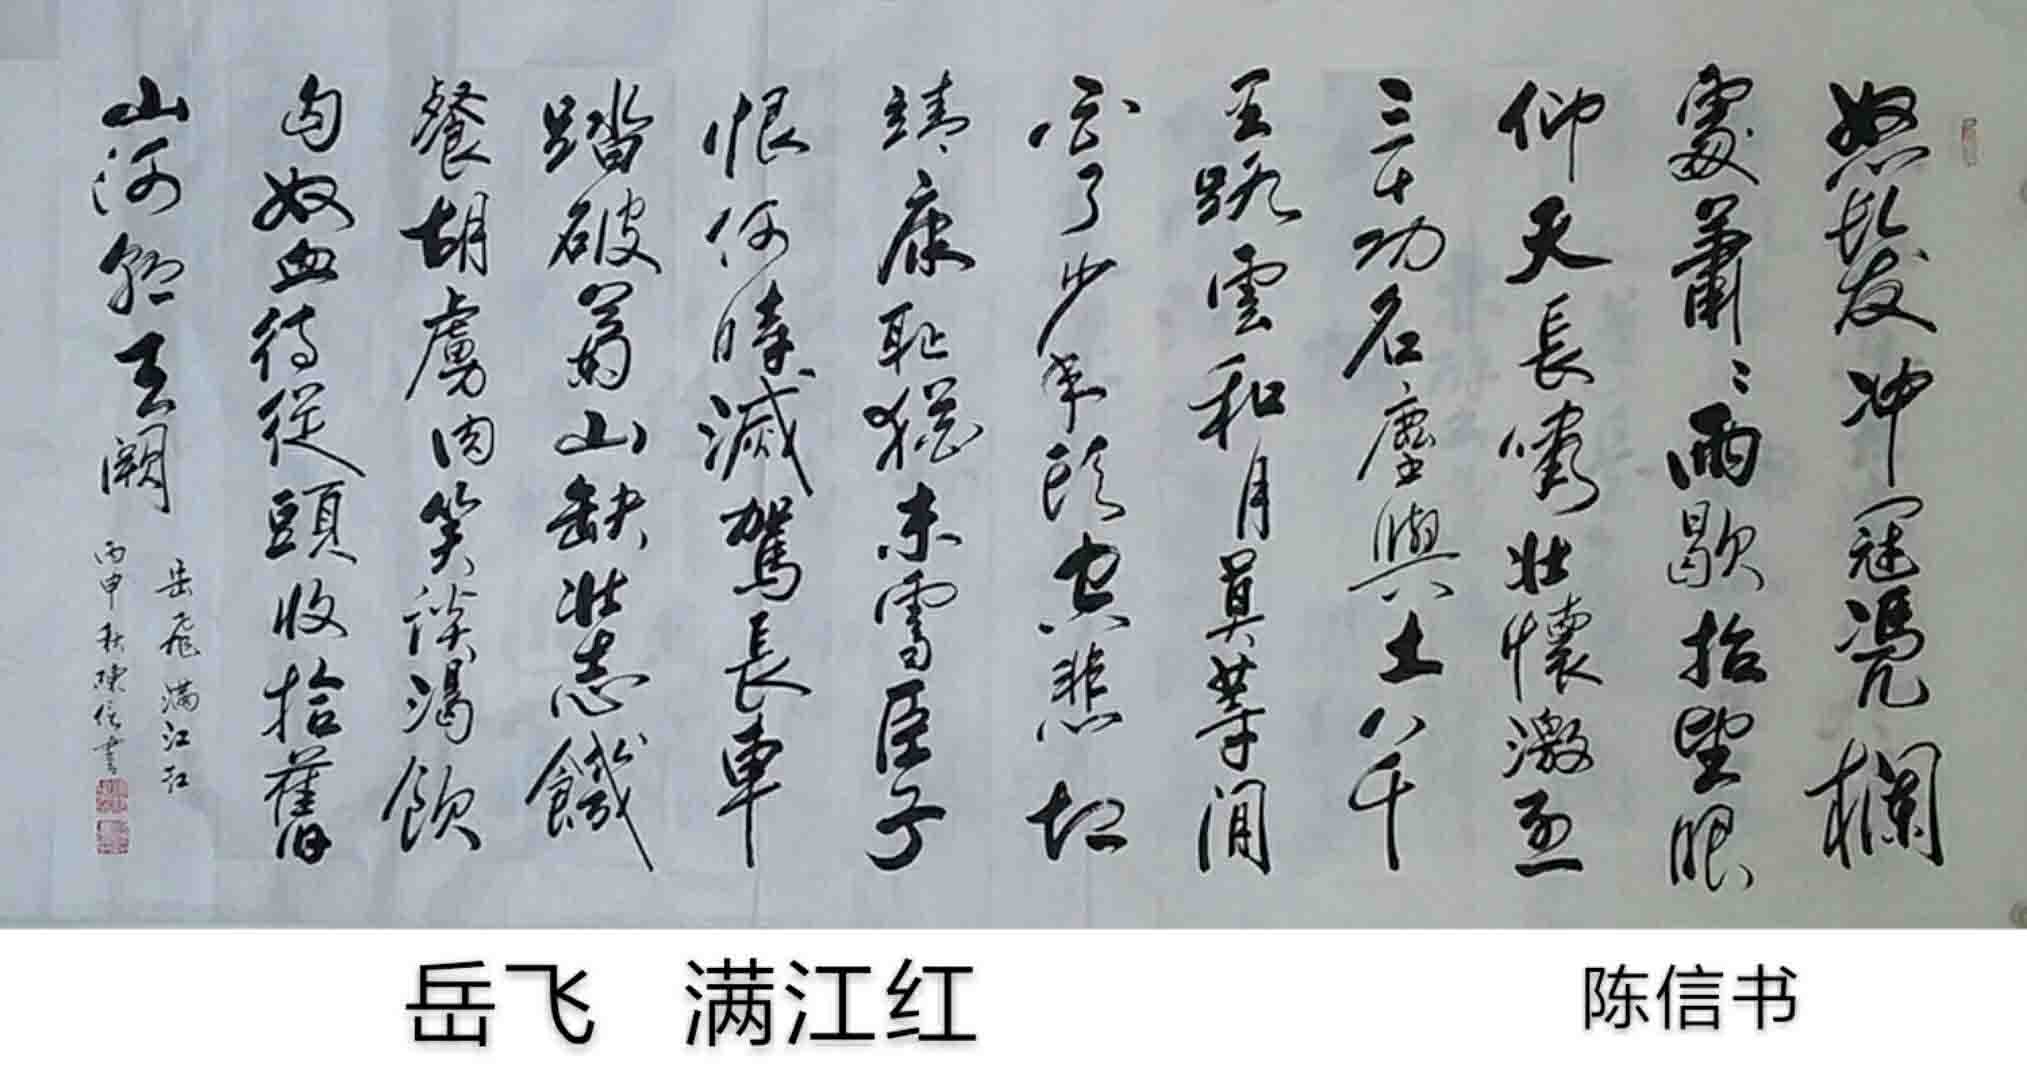 怒髮冲冠凴欄
處蕭〻雨歇抬望眼
仰天長嘯壮懷激烈
三十功名塵與土八千
里路雲和月莫等閒
白了少年頭空悲切
靖康耻猶未雪臣子
恨何時滅駕長車
踏破山缺壯志饑
餐胡虜肉笑談渴飲
匈奴血待從頭收拾舊
山河朝天闕
岳飛满江红
丙申秋陳信書
岳飞 满江红
陈信书